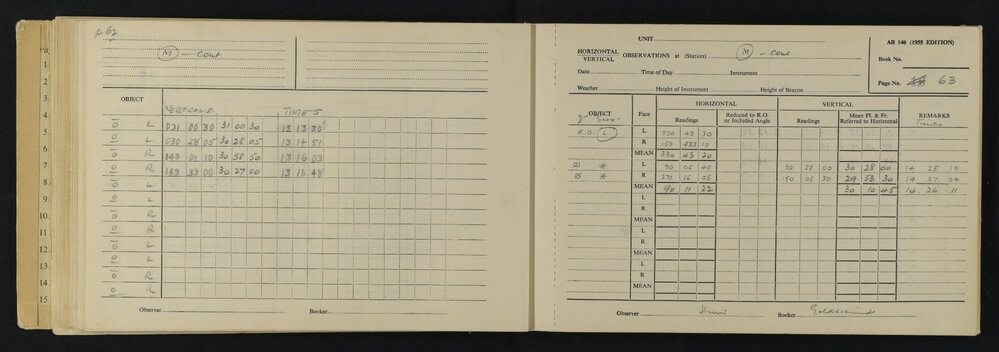 p. 62
M - Cont
OBJECT
VERTICALS. TIMES
O L 031 00 30 31 00 30 13 13 30
O L 030 28 05 30 28 05 13 14 51
O R 149 01 10 30 58 50 13 16 03
O R 149 33 00 30 27 00 13 16 48
O L
O L
O R
O R
O L
O L
O R
O R
Observer Booker
9.
10.
11.
12.
13.
14.
15.
UNIT
AB 146 (1955 EDITION)
HORIZONTAL
VERTICAL OBSERVATIONS at (Station) M - Cont.
Book No.
Date Time of Day Instrument
Page No. 63.
Weather Height of Instrument Height of Beacon
OBJECT Face HORIZONTAL VERTICAL REMARKS
Readings Reduced to R.O. or Included Angle Readings Mean Fl. & Fr. Referred to Horizontal Times
2nd Zero
R.O. L L 330 43 30
R 150 43 10
MEAN 330 43 20
* L 90 06 40 30 28 00 30 28 00 14 25 19
* R 270 16 05 150 06 30 29 53 30 14 27 04
MEAN 90 11 22 30 10 45 14 26 11
L
R
MEAN
L
R
MEAN
L
R
MEAN
Observer Booker